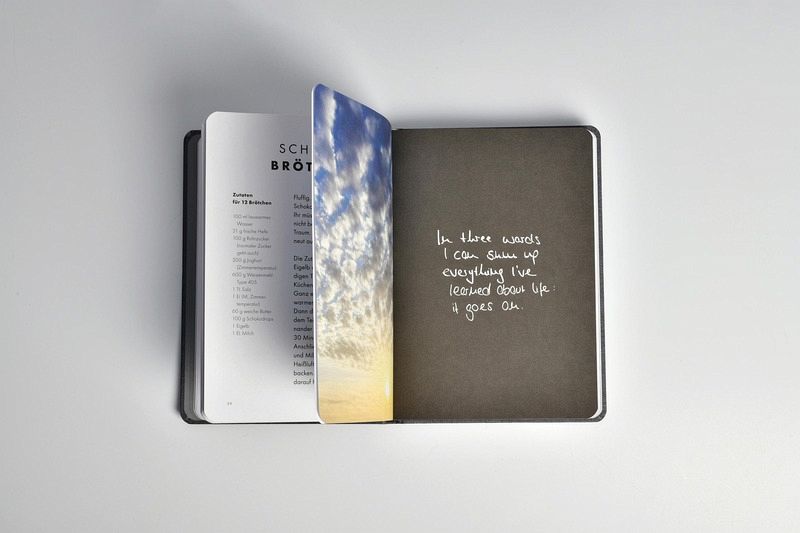 SCH
BRÖT
Zutaten
für 12 Brötchen
100 ml lauwarmes
Wasser
21 g frische Hefe
100 g Rohrzucker
(normaler Zucker
geht auch)
200 g Joghurt
(Zimmertemperatur)
600 g Weizenmehl
Type 405
1 TL Salz
1 Ei (M, Zimmer-
temperatur)
60 g weiche Butter
100 g Schokodrops
1 Eigelb
1 EL Milch
Fluffig
Schoko
Ihr mü
nicht b
Traum.
neut au
Die Zut
Eigelb
digen T
Küchen
Ganz
warme
Dann d
dem Te
nander
30 Min
Anschli
und Mil
Heißluft
backen.
darauf
In three words
I can sum up
everything I've
learned about life:
it goes on.